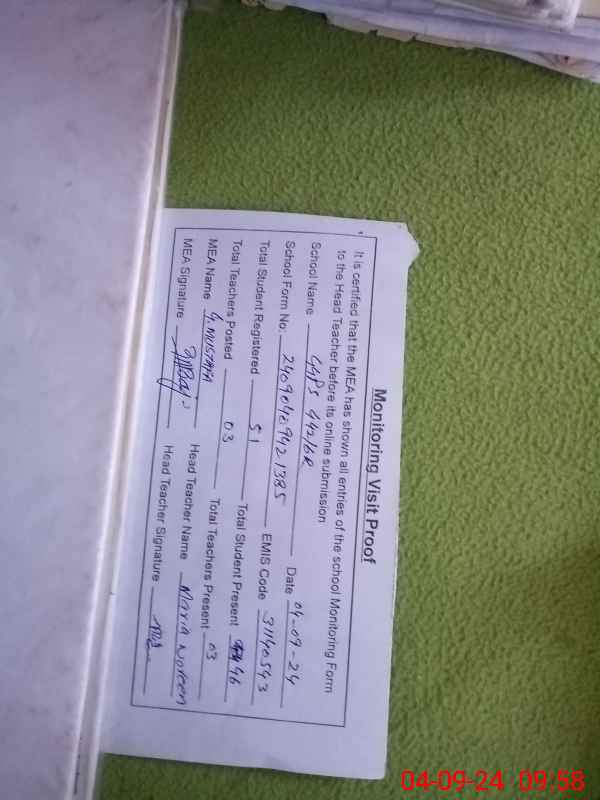 Monitoring Visit Proof
It is certified that the MEA has shown all entries of the school Monitoring Form
to the Head Teacher before its online submission
School Name GGPS 442/6R
School Form No: 24090409421385 Date 04-09-24
Total Student Registered 51 EMIS Code 31140543
Total Teachers Posted 03 Total Student Present 46
MEA Name G. MUSTAFA Total Teachers Present 03
MEA Signature Head Teacher Name Maria Noreen
Head Teacher Signature
04-09-24 09:58